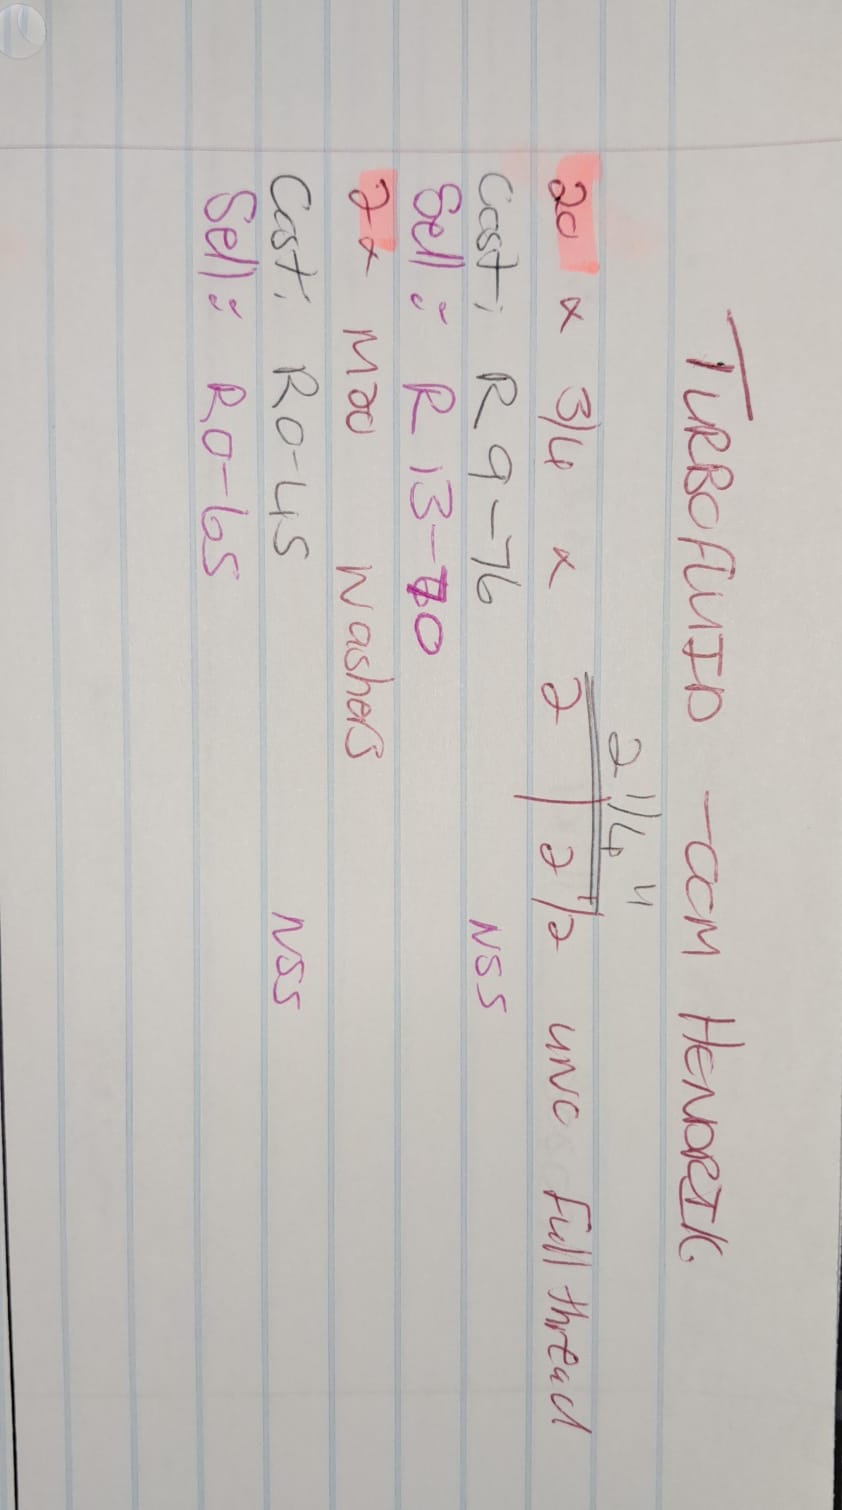 TURBOFLUID - OCM HENDRIK
2 1/4"
20 x 3/4 x 2 | 2 1/2 UNC full thread
Cost: R9-76 NSS
Sell: R13-70
2x M20 washers
Cost: R0-45 NSS
Sell: R0-65